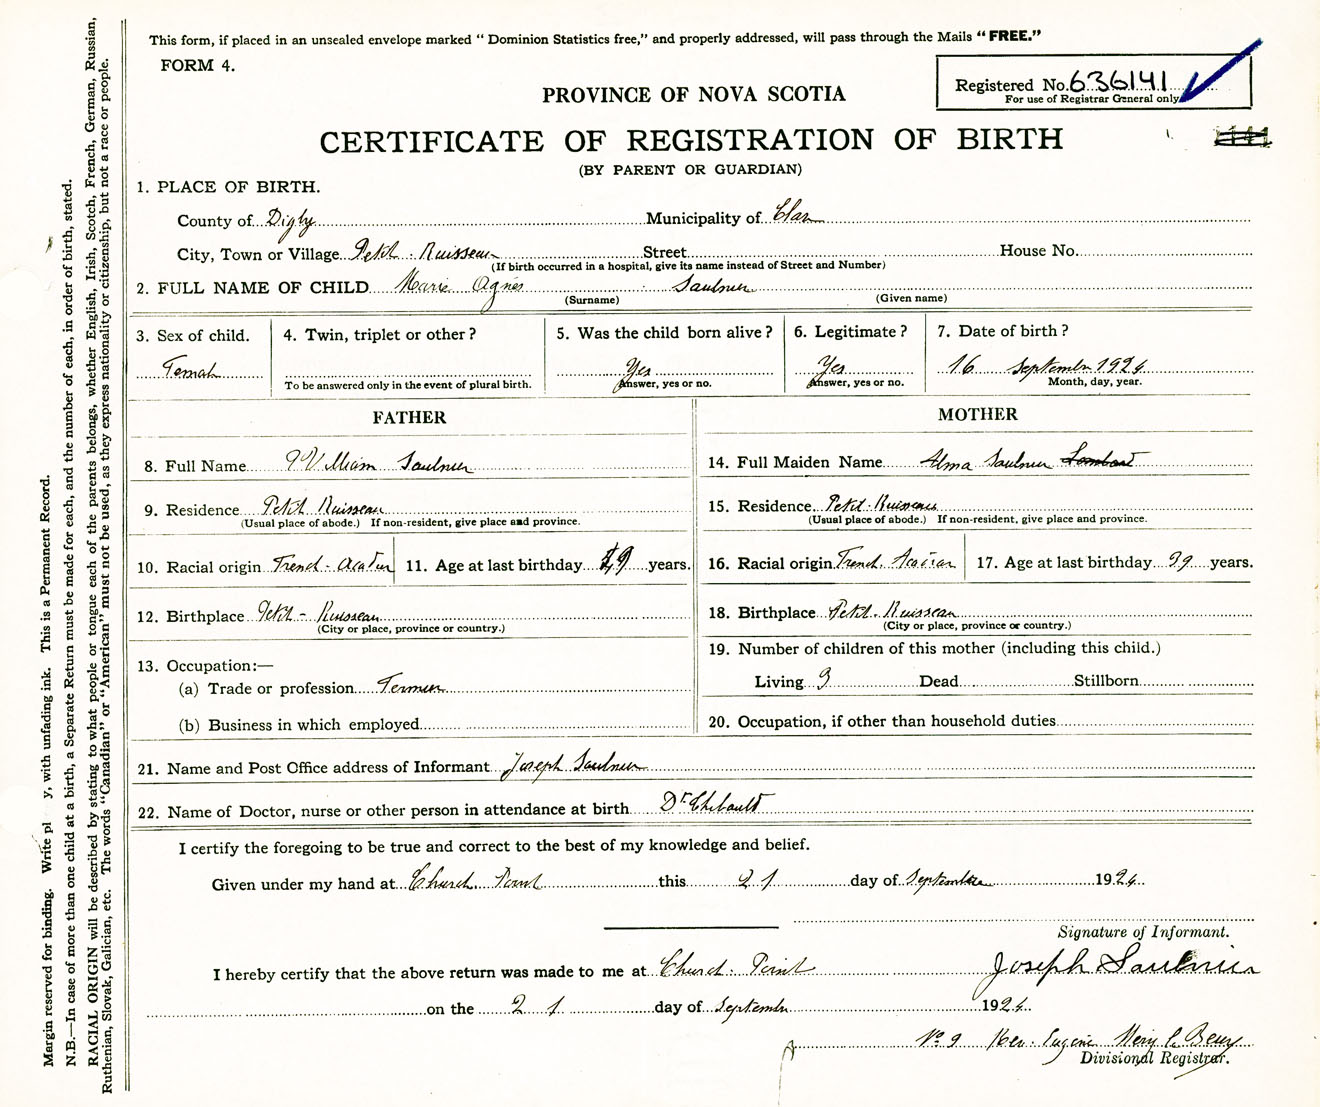 This form, if placed in an unsealed envelope marked "Dominion Statistics free," and properly addressed, will pass through the Mails "FREE."
FORM 4.
Registered No. 636141
For use of Registrar General only
PROVINCE OF NOVA SCOTIA
CERTIFICATE OF REGISTRATION OF BIRTH
(BY PARENT OR GUARDIAN)
1. PLACE OF BIRTH.
County of Digby Municipality of Clare
City, Town or Village Petit - Ruisseau Street House No.
(If birth occurred in a hospital, give its name instead of Street and Number)
2. FULL NAME OF CHILD Marie Agnes Saulnier
(Surname) (Given name)
3. Sex of child. 4. Twin, triplet or other? 5. Was the child born alive? 6. Legitimate? 7. Date of birth?
Female Yes Yes 16 September 1924
To be answered only in the event of plural birth. Answer, yes or no. Answer, yes or no. Month, day, year.
FATHER MOTHER
8. Full Name William Saulnier 14. Full Maiden Name Alma Saulnier
9. Residence Petit Ruisseau 15. Residence Petit-Ruisseau
(Usual place of abode.) If non-resident, give place and province. (Usual place of abode.) If non-resident, give place and province.
10. Racial origin French-Acadien 11. Age at last birthday years. 16. Racial origin French Acadian 17. Age at last birthday 39 years.
12. Birthplace Petit - Ruisseau 18. Birthplace Petit-Ruisseau
(City or place, province or country.) (City or place, province or country.)
13. Occupation:— 19. Number of children of this mother (including this child.)
(a) Trade or profession Farmer Living 9 Dead Stillborn
(b) Business in which employed 20. Occupation, if other than household duties
21. Name and Post Office address of Informant Joseph Saulnier
22. Name of Doctor, nurse or other person in attendance at birth Dr Thibault
I certify the foregoing to be true and correct to the best of my knowledge and belief.
Given under my hand at Church Point this 21 day of September 1924.
Signature of Informant.
I hereby certify that the above return was made to me at Church Point Joseph Saulnier
on the 21 day of September 1924.
No 9 Rev. Eugene
Divisional Registrar.
Margin reserved for binding. Write pl y, with unfading ink. This is a Permanent Record.
N.B.—In case of more than one child at a birth, a Separate Return must be made for each, and the number of each, in order of birth, stated.
RACIAL ORIGIN will be described by stating to what people or tongue each of the parents belongs, whether English, Irish, Scotch, French, German, Russian,
Ruthenian, Slovak, Galician, etc. The words "Canadian" or "American" must not be used, as they express nationality or citizenship, but not a race or people.